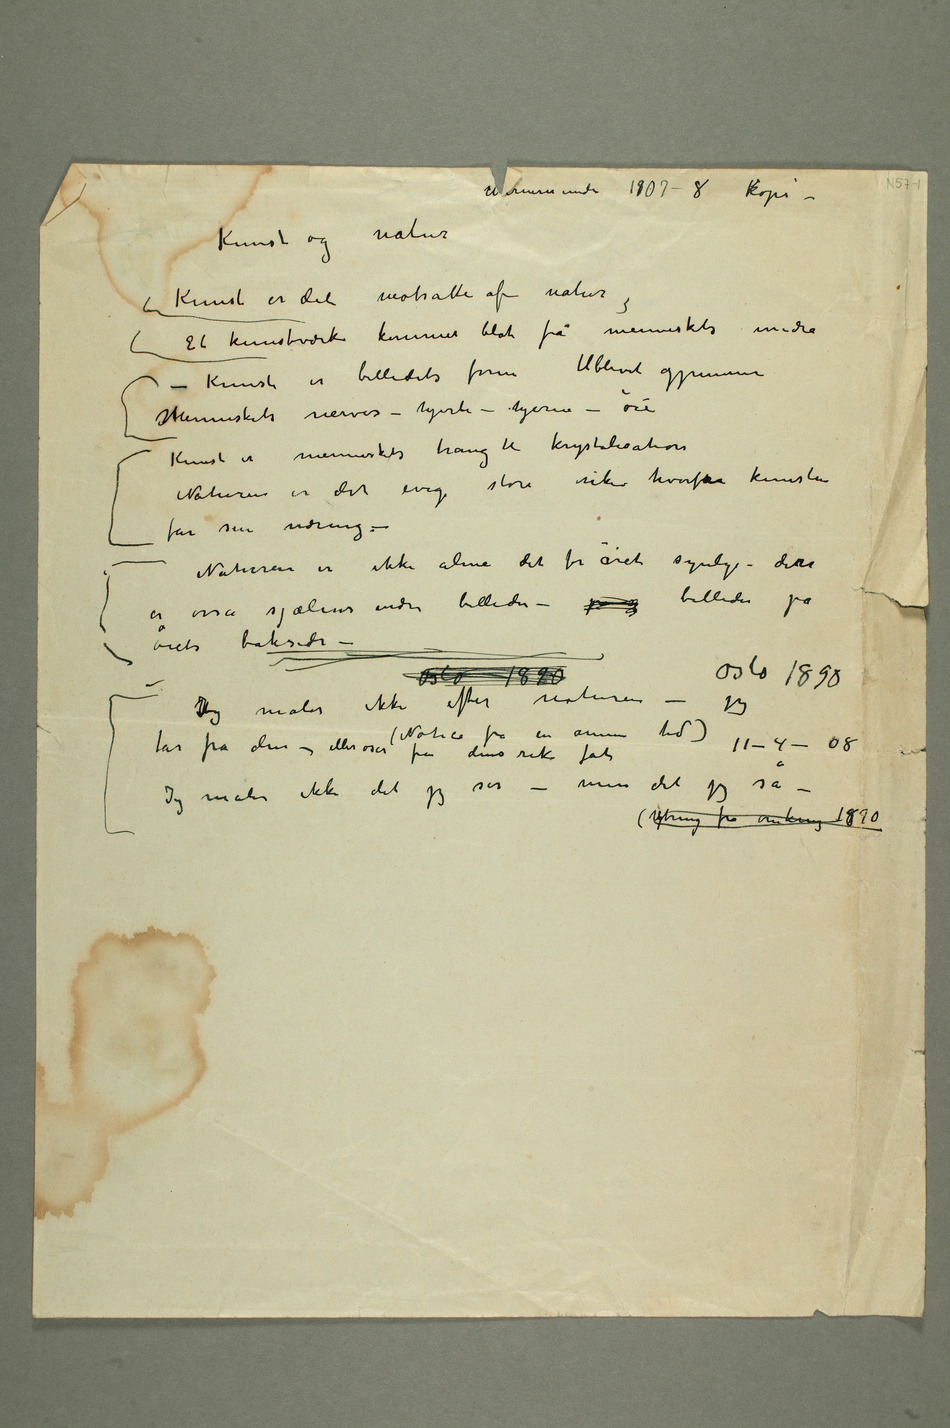 Warnemünde 1907–8 Kopi –
N57-1
Kunst og natur
Kunst er det motsatte af natur
Et kunstværk kommer blot fra menneskets indre
– Kunst er billedets form tilblivet gjennem
Menneskets nerver – hjerte – hjerne – öie
Kunst er menneskets trang til krystalisation
Naturen er det evig store rike hvorfra kunsten
får sin næring. –
Naturen er ikke alene det for öiet synlige – den
er også sjælens indre billeder – billeder på
öiets bakside –
Oslo 1890 Oslo 1898
Jeg maler ikke efter naturen – jeg
(Notice fra en annen tid) 11–4–08
tar fra den – eller öser fra dens rike fat
Jeg maler ikke det jeg ser – men det jeg så –
(Ytring fra omkring 1890